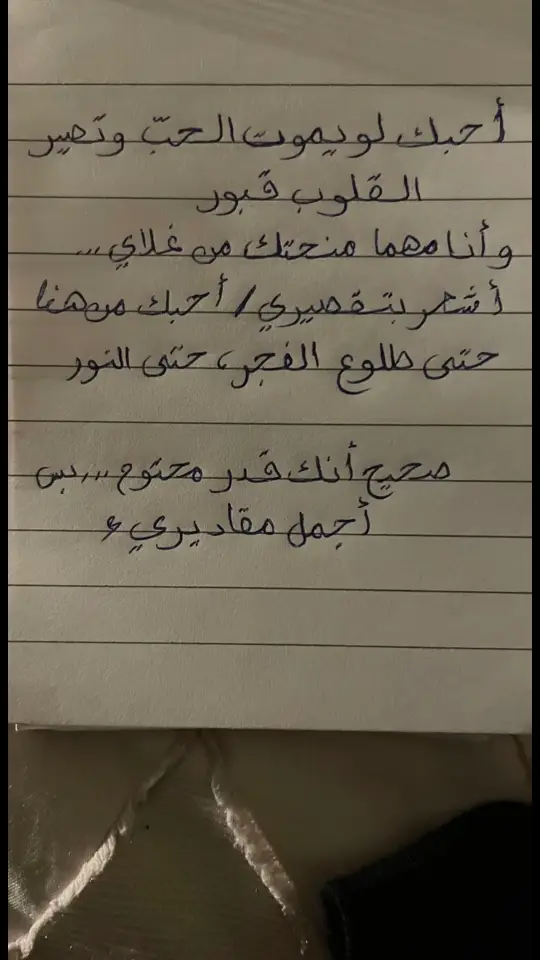 أحبك لو يموت الحبّ وتصير
القلوب قبور
وأنا مهما منحتك من غلاي...
أشعر بتقصيري / أحبك من هنا
حتى طلوع الفجر، حتى النور
صحيح أنك قدر محتوم... بس
أجمل مقاديري